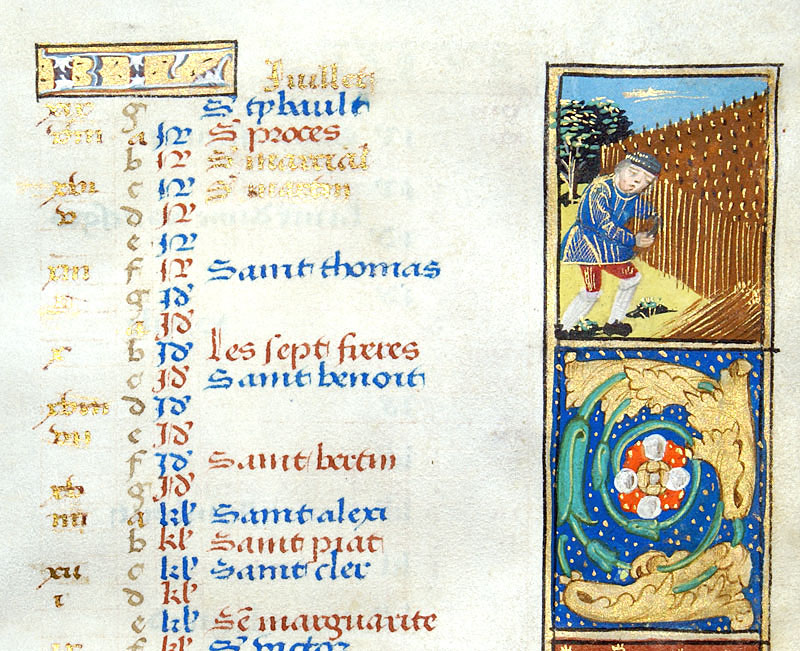 KL Juillet
xix g St tybault
viii a N St proces
b N St marcial
xvi c N St martin
v d N
e N
xiii f N Saint thomas
g Id
a Id
x b Id Les sept freres
c Id Saint benoit
xviii d Id
vii e Id
f Id Saint bertin
xv g Id
iiii a kl Saint alexi
b kl Saint prat
xii c kl Saint cler
i d kl
e kl Se marguarite
f kl St victor